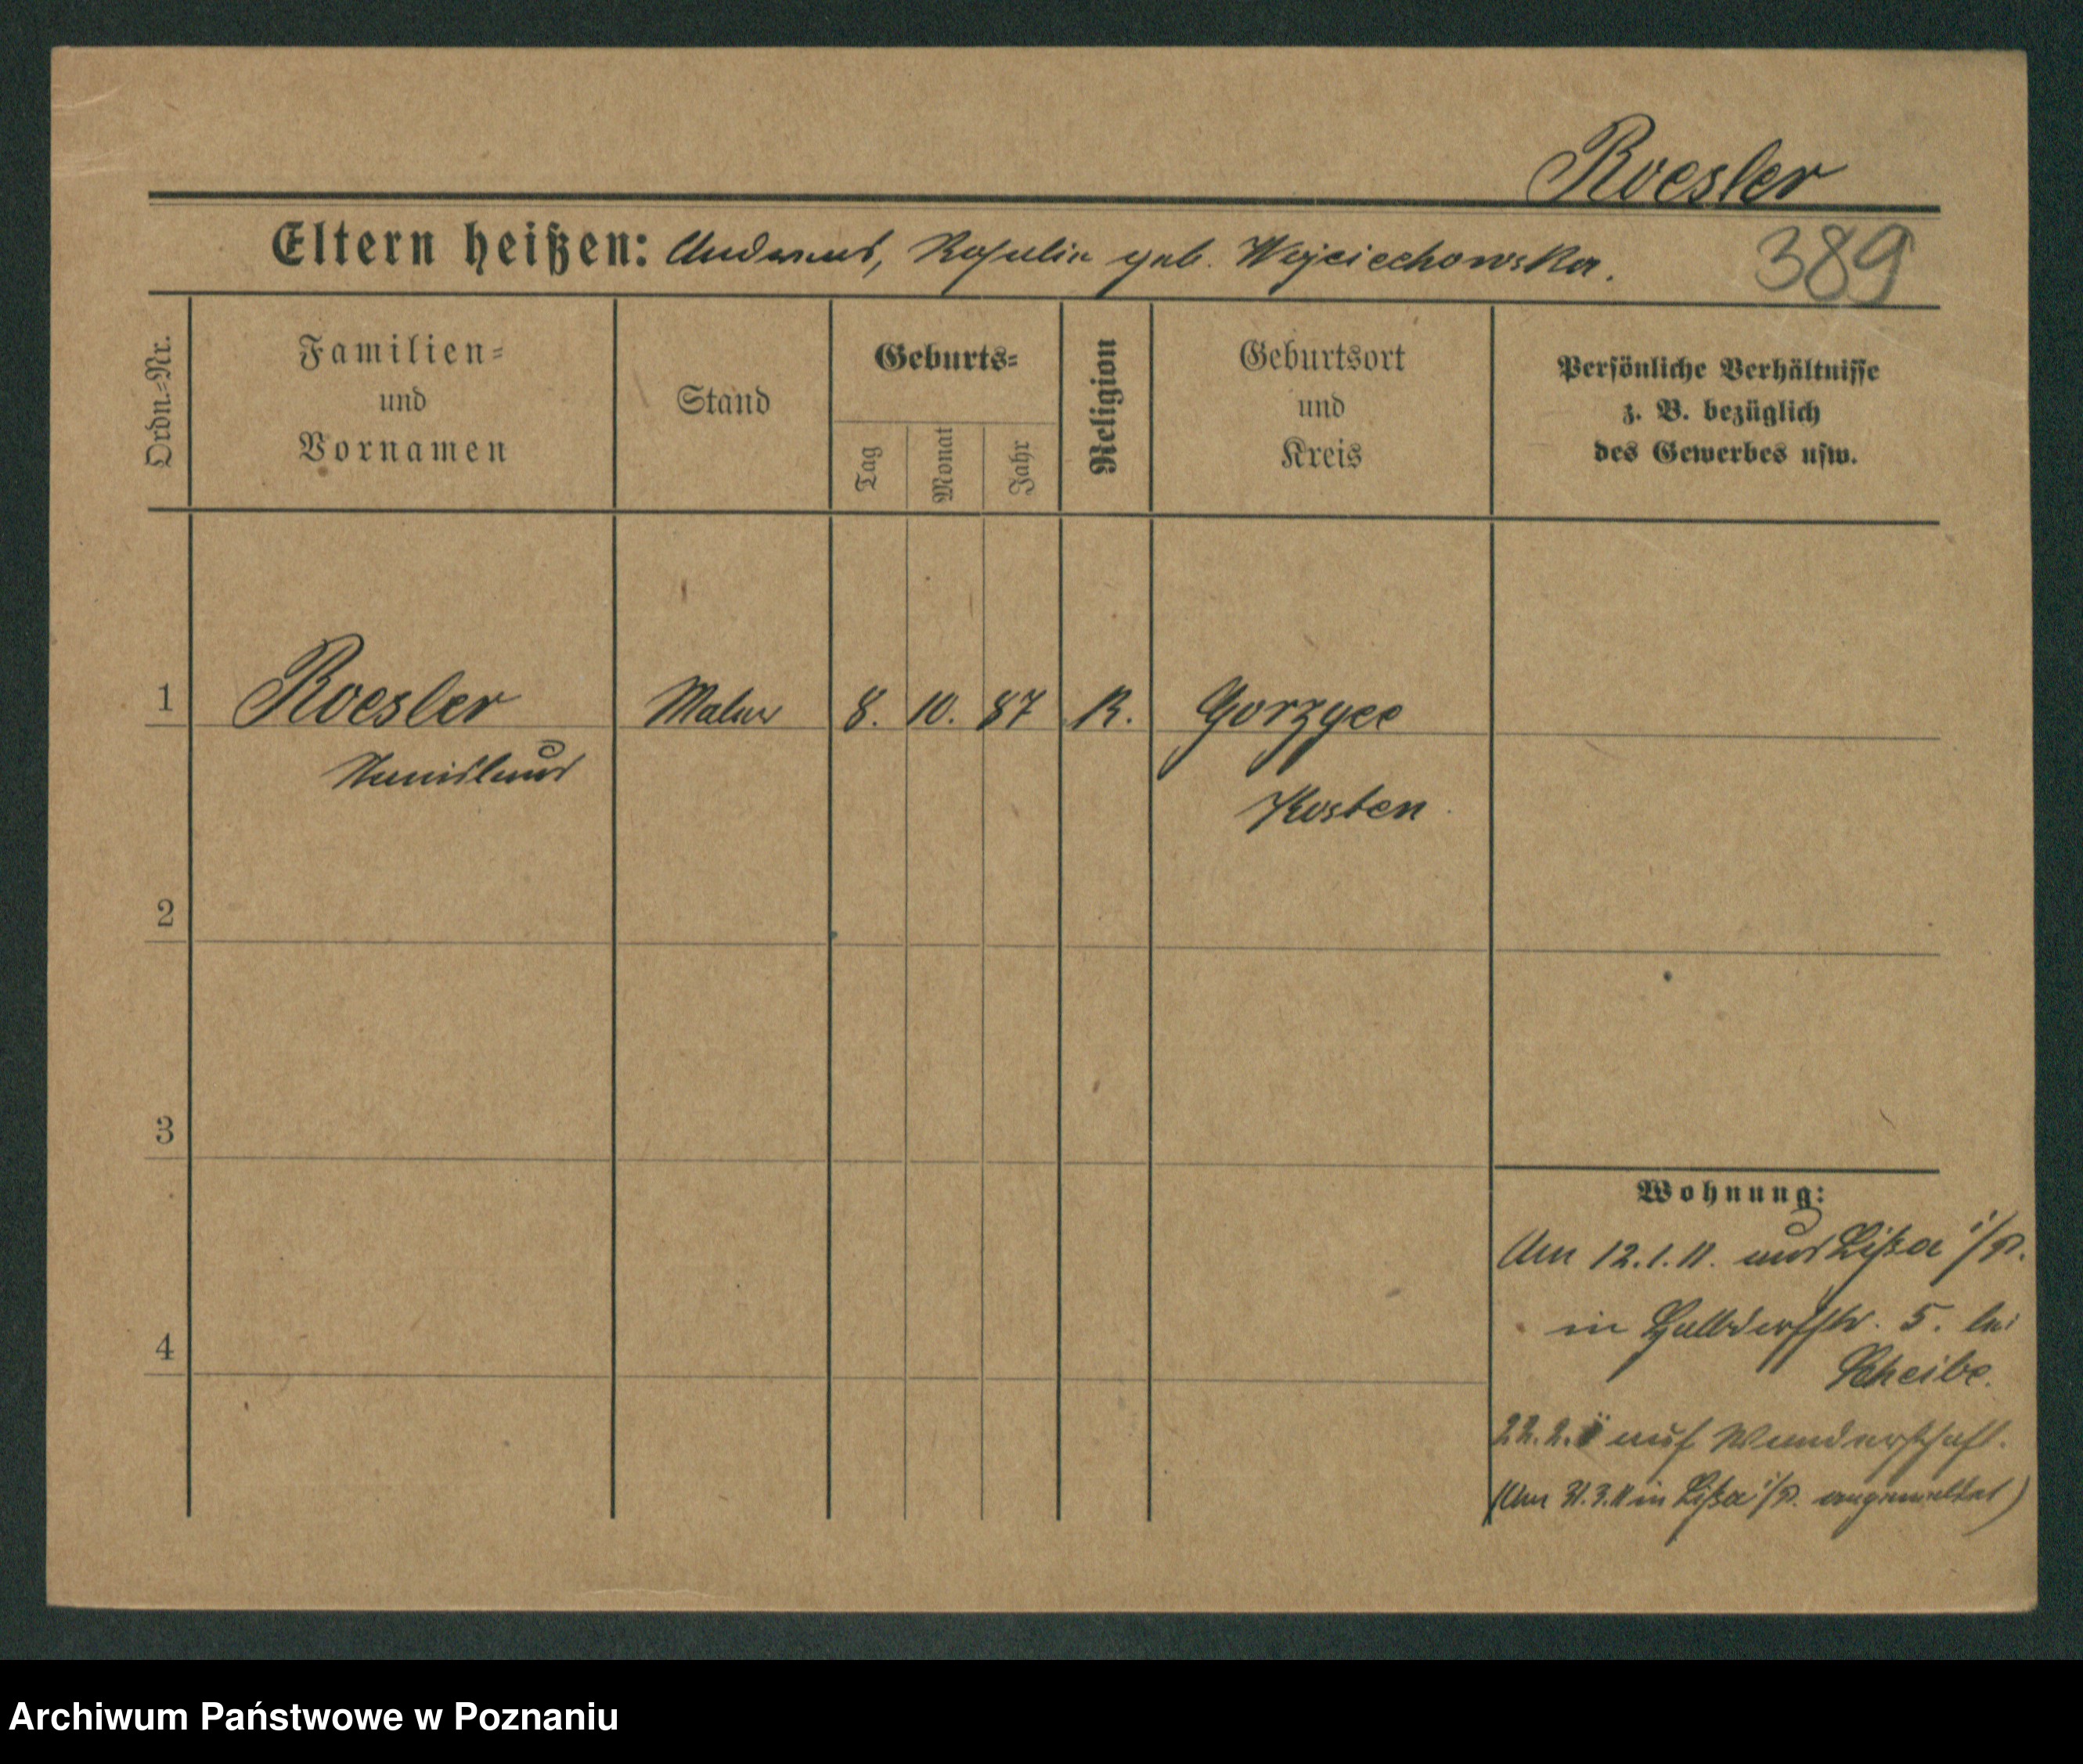 Roesler
Eltern heißen: Andreas, Rosalie geb. Wojciechowska.
389
Ordn.-Nr.
Familien-
und
Vornamen
Stand
Geburts-
Tag
Monat
Jahr
Religion
Geburtsort
und
Kreis
Persönliche Verhältnisse
z. B. bezüglich
des Gewerbes usw.
1
Roesler
Maler
8. 10. 87
K.
Gorzyce
Stanislaus
Kosten
2
3
4
Wohnung:
Am 12.1.11. aus Lißa i/P.
in Halbdorfstr. 5. bei
Scheibe.
22.2. auf Wanderschaft.
(Am 31.3.11 in Lißa i/P. angemeldet)
Archiwum Państwowe w Poznaniu